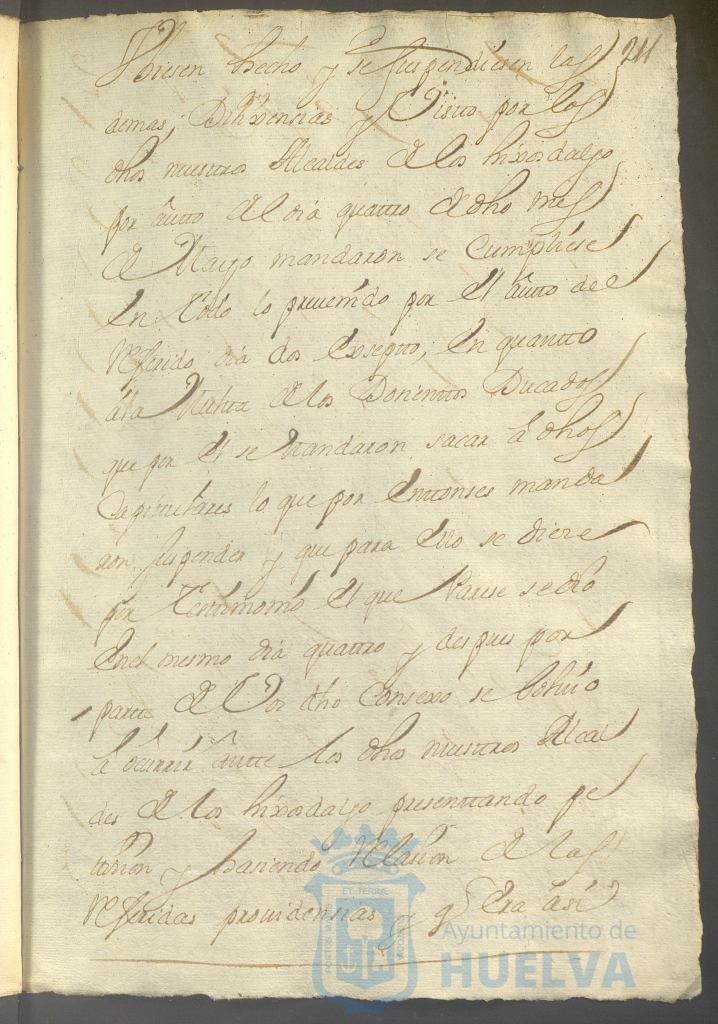 211
Vbiesen hecho y se suspendiesen las
demas, Dilixensias y Visto por los
dhos nuestros Alcaldes de los hixosdalgo
por âuto del dia quatro de dho mes
de Mayo mandaron se Cumpliese
En todo lo prevenido por el âuto del
Referido dia dos Exsepto, En quantto
âla Multa de los Dosientos Ducados
que por el se Mandaron sacar â dhos
Capitulares lo que por Enttonses manda
ron suspender y que para Ello se diere
por Testimonio el que Parese se dio
En el mesmo dia quatro y despues por
parte de Vos dho Consexo se bolvio
â ôcurrir ântte los dhos nuestros Alcal
des de los hixosdalgo presenttando pe
tision y hasiendo Relasion de las
Referidas providensias y q Era âsi
Ayuntamiento de
HUELVA